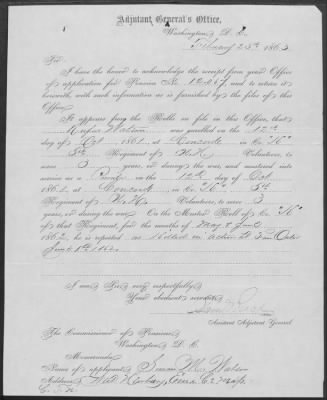 Adjutant General's Office,
Washington, D. C.
February 25th 1863
Sir:
I have the honor to acknowledge the receipt from your Office
of application for Pension No. 12,067, and to return it
herewith, with such information as is furnished by the files of this
Office.
It appears from the Rolls on file in this Office, that
Rufus Watson was enrolled on the 12th
day of Oct 1861, at Concord in Co. "K"
5th Regiment of N.H. Volunteers, to
serve 3 years, or during the war, and was mustered into
service as a Private on the 12th day of Oct
1861, at Concord, in Co. "K", 5th
Regiment of N.H. Volunteers, to serve 3
years, or during the war. On the Muster Roll of Co. "K"
of that Regiment, for the months of May & June,
1862, he is reported as Killed in action at Fair Oaks
June 1st 1862.
I am, Sir, very respectfully,
Your obedient servant,
Assistant Adjutant General.
The Commissioner of Pensions,
Washington, D. C.
Memoranda:
Name of applicant, M. Watson
Address,